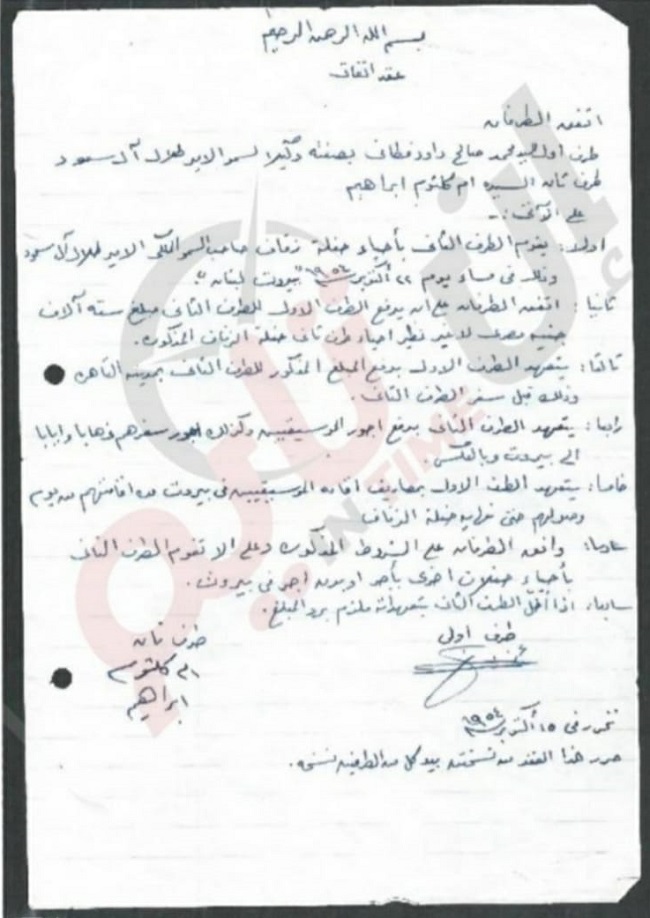 بسم الله الرحمن الرحيم
عقد اتفاق
اتفق الطرفان
طرف اول السيد محمد صالح داود قطان بصفته وكيلا لسمو الامير طلال آل سعود
طرف ثان السيده ام كلثوم ابراهيم
على الآتى :-
اولا : يقوم الطرف الثانى بأحياء حفلة زفاف صاحب السمو الملكى الامير طلال آل سعود
وذلك فى مساء يوم ٢٢ أكتوبر ١٩٥٤ "بيروت لبنان".
ثانيا : اتفق الطرفان على ان يدفع الطرف الاول للطرف الثانى مبلغ سته آلاف
جنيه مصرى لا غير نظير احياء طرف ثانى حفلة الزفاف المذكوره .
ثالثا : يتعهد الطرف الاول بدفع المبلغ المذكور للطرف الثانى بمدينه القاهره
وذلك قبل سفر الطرف الثانى .
رابعا : يتعهد الطرف الثانى بدفع اجور الموسيقيين وكذلك اجور سفرهم ذهابا وايابا
الى بيروت وبالعكس .
خامسا : يتعهد الطرف الاول بمصاريف اقامه الموسيقيين فى بيروت مده اقامتهم من يوم
وصولهم حتى نهايه حفلة الزفاف
سادسا : وافق الطرفان على الشروط المذكوره وعلى الا تقوم الطرف الثانى
بأحياء حفلات اخرى بأجر او بدون اجر فى بيروت .
سابعا : اذا أخل الطرف الثانى بتعهداته ملزم برد المبلغ .
طرف اولى
طرف ثان
ام كلثوم
ابراهيم
تحرر فى ١٥ أكتوبر ١٩٥٤
حرر هذا العقد من نسختين بيد كل من الطرفين نسخه .
إن تايم
IN TIME